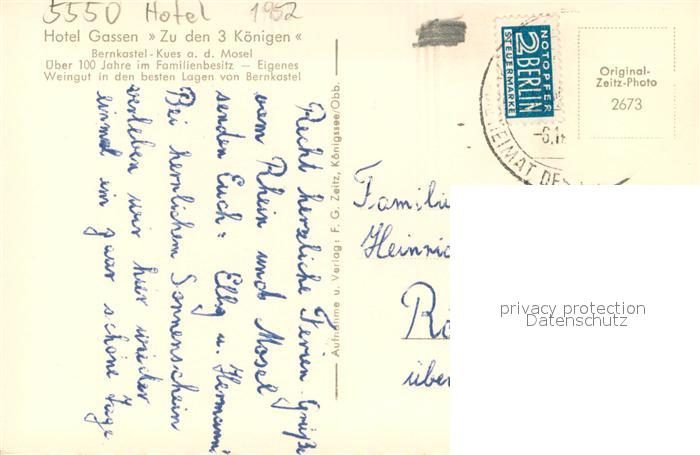 5550 Hotel 1952
Hotel Gassen » Zu den 3 Königen «
Bernkastel-Kues a. d. Mosel
Über 100 Jahre im Familienbesitz — Eigenes
Weingut in den besten Lagen von Bernkastel
Recht herzliche Ferien Grüße
vom Rhein und Mosel
senden Euch: Elly u. Hermann
Bei herrlichem Sonnenschein
verleben wir hier wieder
einmal ein paar schöne Tage
Aufnahme u. Verlag: F. G. Zeitz, Königssee/Obb.
NOTOPFER
2 BERLIN
STEUERMARKE
HEIMAT DES
Original-
Zeitz-Photo
2673
Famili
Heinri
privacy protection
Datenschutz